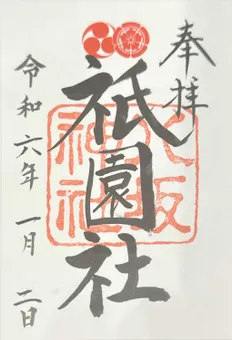 奉拝
八坂神社
祇園社
令和六年一月二日